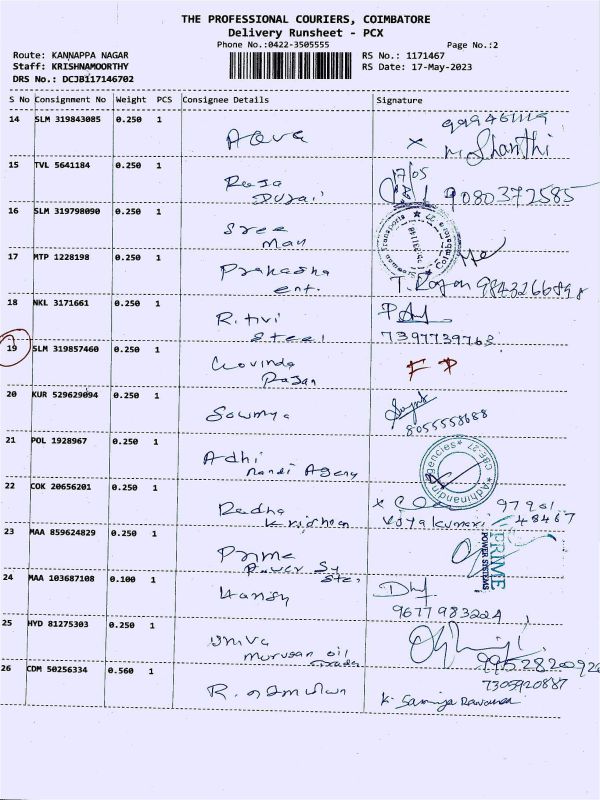 THE PROFESSIONAL COURIERS, COIMBATORE
Delivery Runsheet - PCX
Phone No.:0422-3505555 Page No.:2
Route: KANNAPPA NAGAR RS No.: 1171467
Staff: KRISHNAMOORTHY RS Date: 17-May-2023
DRS No.: DCJB117146702
S No Consignment No Weight PCS Consignee Details Signature
14 SLM 319843085 0.250 1
M Shanthi
15 TVL 5641184 0.250 1 Raja 17/05
Durai 9080372585
16 SLM 319798090 0.250 1 Sree
Mau
17 MTP 1228198 0.250 1 Prakasha
ent. T. Rajan 9843266898
18 NKL 3171661 0.250 1 Ritivi
Steel 7397739763
19 SLM 319857460 0.250 1 Govinda
Rajan
20 KUR 529629094 0.250 1 Sowmya
8055558688
21 POL 1928967 0.250 1 Adhi
nandi Agency
Adhinandhi Agencies CBE-27
22 COK 20656201 0.250 1 Radha 97901
Krishnan Vidya Kumari 48467
23 MAA 859624829 0.250 1 Prime
Power Sy
stei PRIME
POWER SYSTEMS
24 MAA 103687108 0.100 1
9677983224
25 HYD 81275303 0.250 1
murugan oil
9952820092
26 CDM 50256334 0.560 1 7305920887